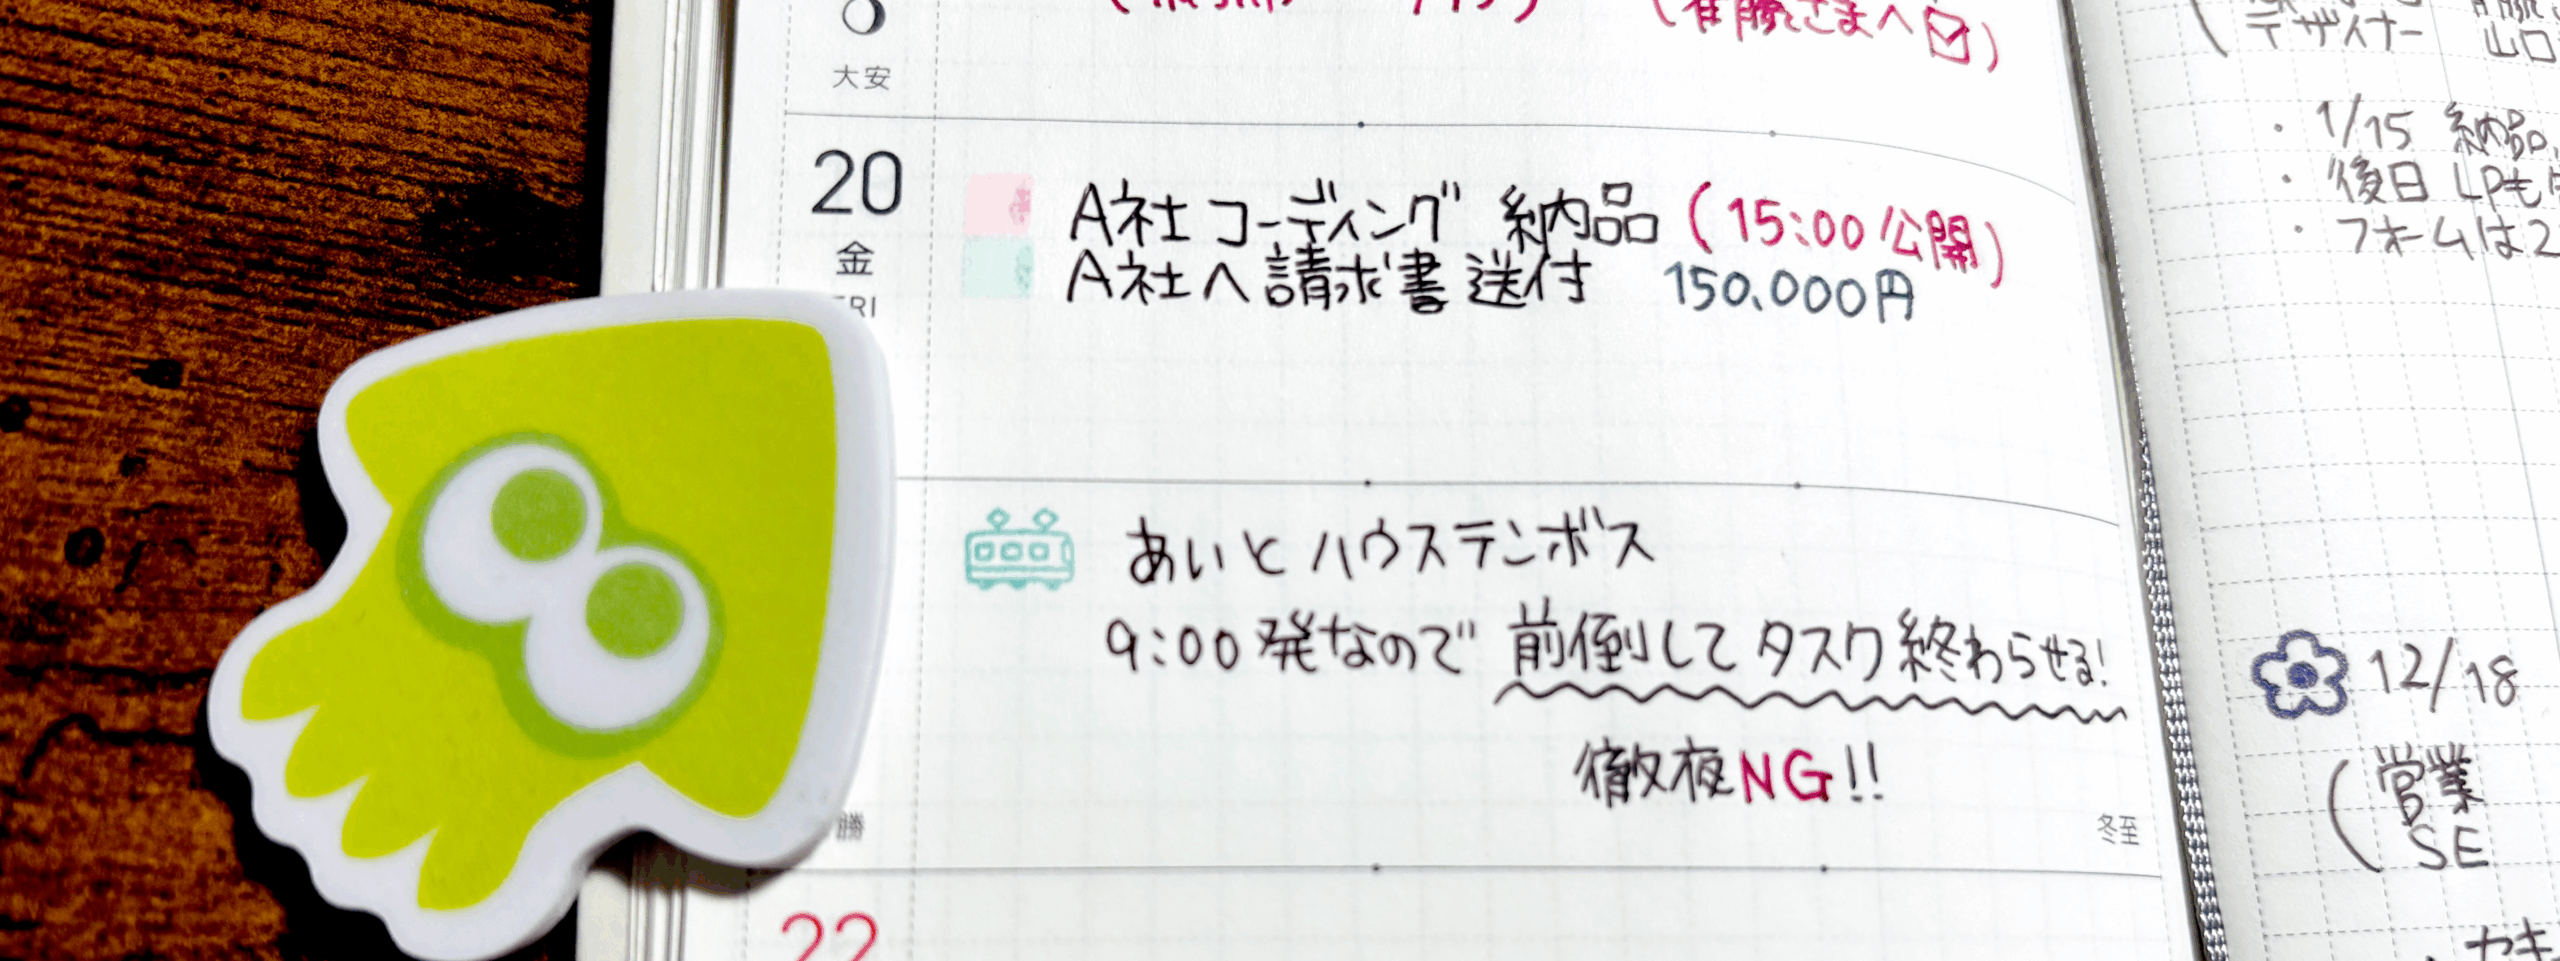 さまへ
大安
20
金
A社 コーディング 納品 (15:00 公開)
A社へ請求書 送付 150,000円
あいと ハウステンボス
9:00 発なので 前倒してタスク終わらせる!
徹夜NG!!
勝
冬至
22
デザイナー 山口
・1/15 納品
・後日 LPも
・フォームは2
12/18
(営業
SE
・カキ